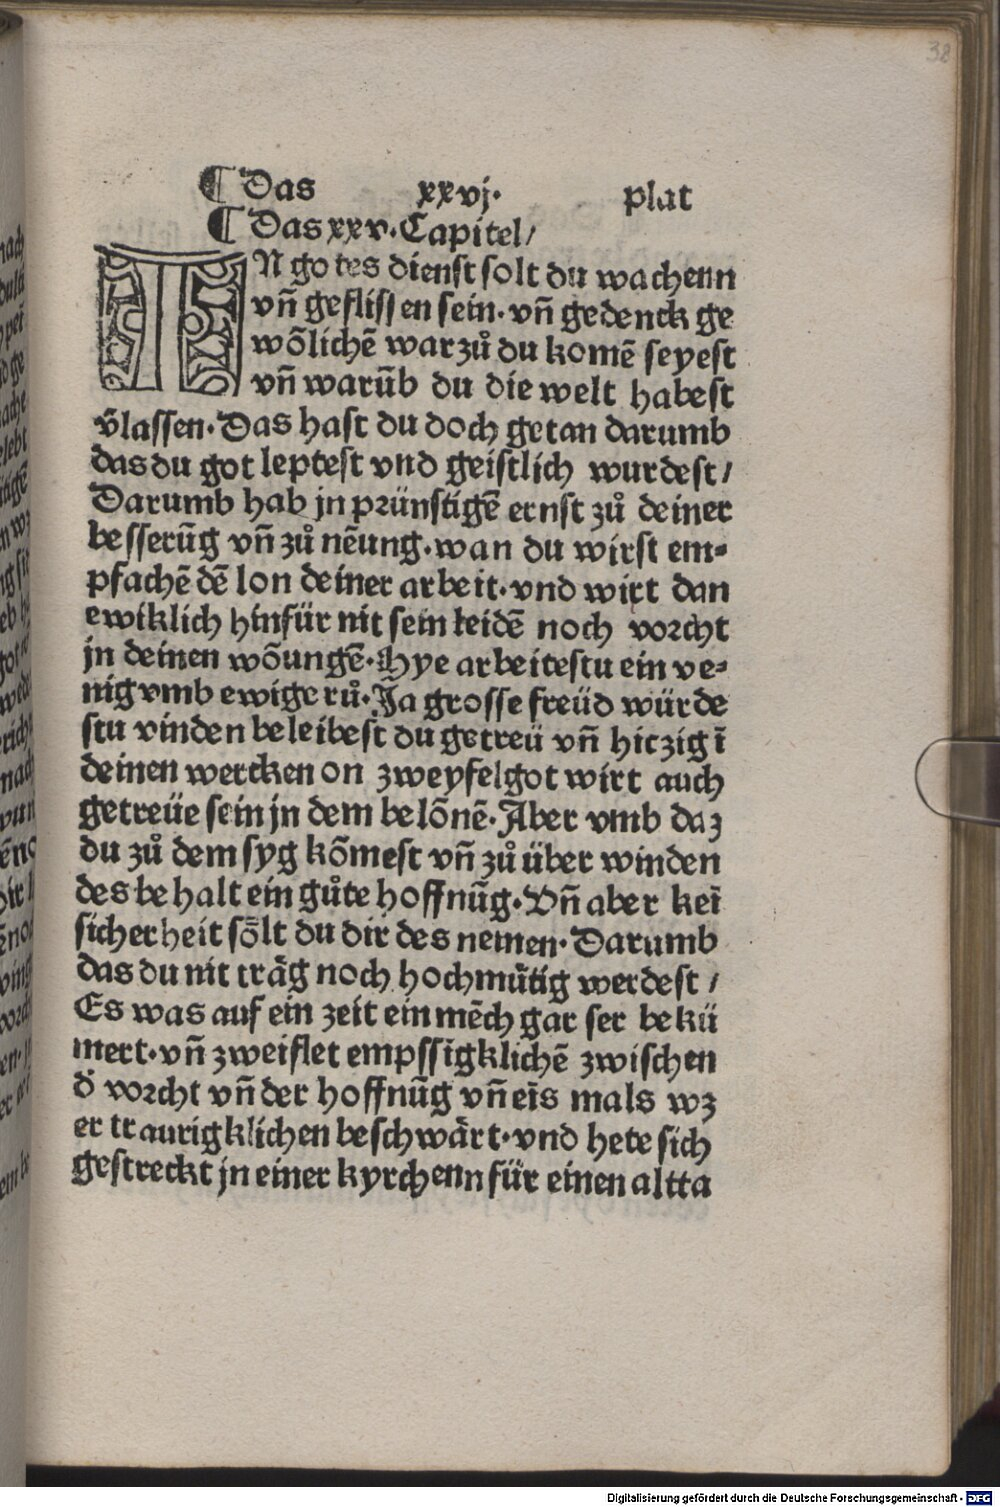 38
¶ Das xxvj. plat
¶ Das xxv. Capitel/
IN gotes dienst solt du wachenn
vn̄ geflissen sein. vn̄ gedenck ge
wo᷑lichē warzů du komē seyest
vn̄ warūb du die welt habest
v᷑lassen. Das hast du doch getan darumb
das du got leptest vnd geistlich wurdest/
Darumb hab jn prünstigē ernst zů deiner
besserūg vn̄ zů nēung. wan du wirst em⸗
pfachē dē lon deiner arbeit. vnd wirt dan
ewiklich hinfür nit sein leidē noch vorcht
jn deinen wōungē. Hye arbeitestu ein ve⸗
nig vmb ewige rů. Ja grosse freüd würde
stu vinden beleibest du getreü vn̄ hitzig ī
deinen wercken on zweyfel got wirt auch
getreüe sein jn dem belōnē. Aber vmb daz
du zů dem syg kōmest vn̄ zů über winden
des behalt ein gůte hoffnūg. Vn̄ aber keī
sicherheit sölt du dir des nemen. Darumb
das du nit träg noch hochmütig werdest/
Es was auf ein zeit ein mēch gar ser bekü
mert. vn̄ zweiflet empssigklichē zwischen
d᷑ vorcht vn̄ der hoffnūg vn̄ eīs mals wz
er traurigklichen beschwärt. vnd hete sich
gestreckt jn einer kyrchenn für einen altta
Digitalisierung gefördert durch die Deutsche Forschungsgemeinschaft - DFG